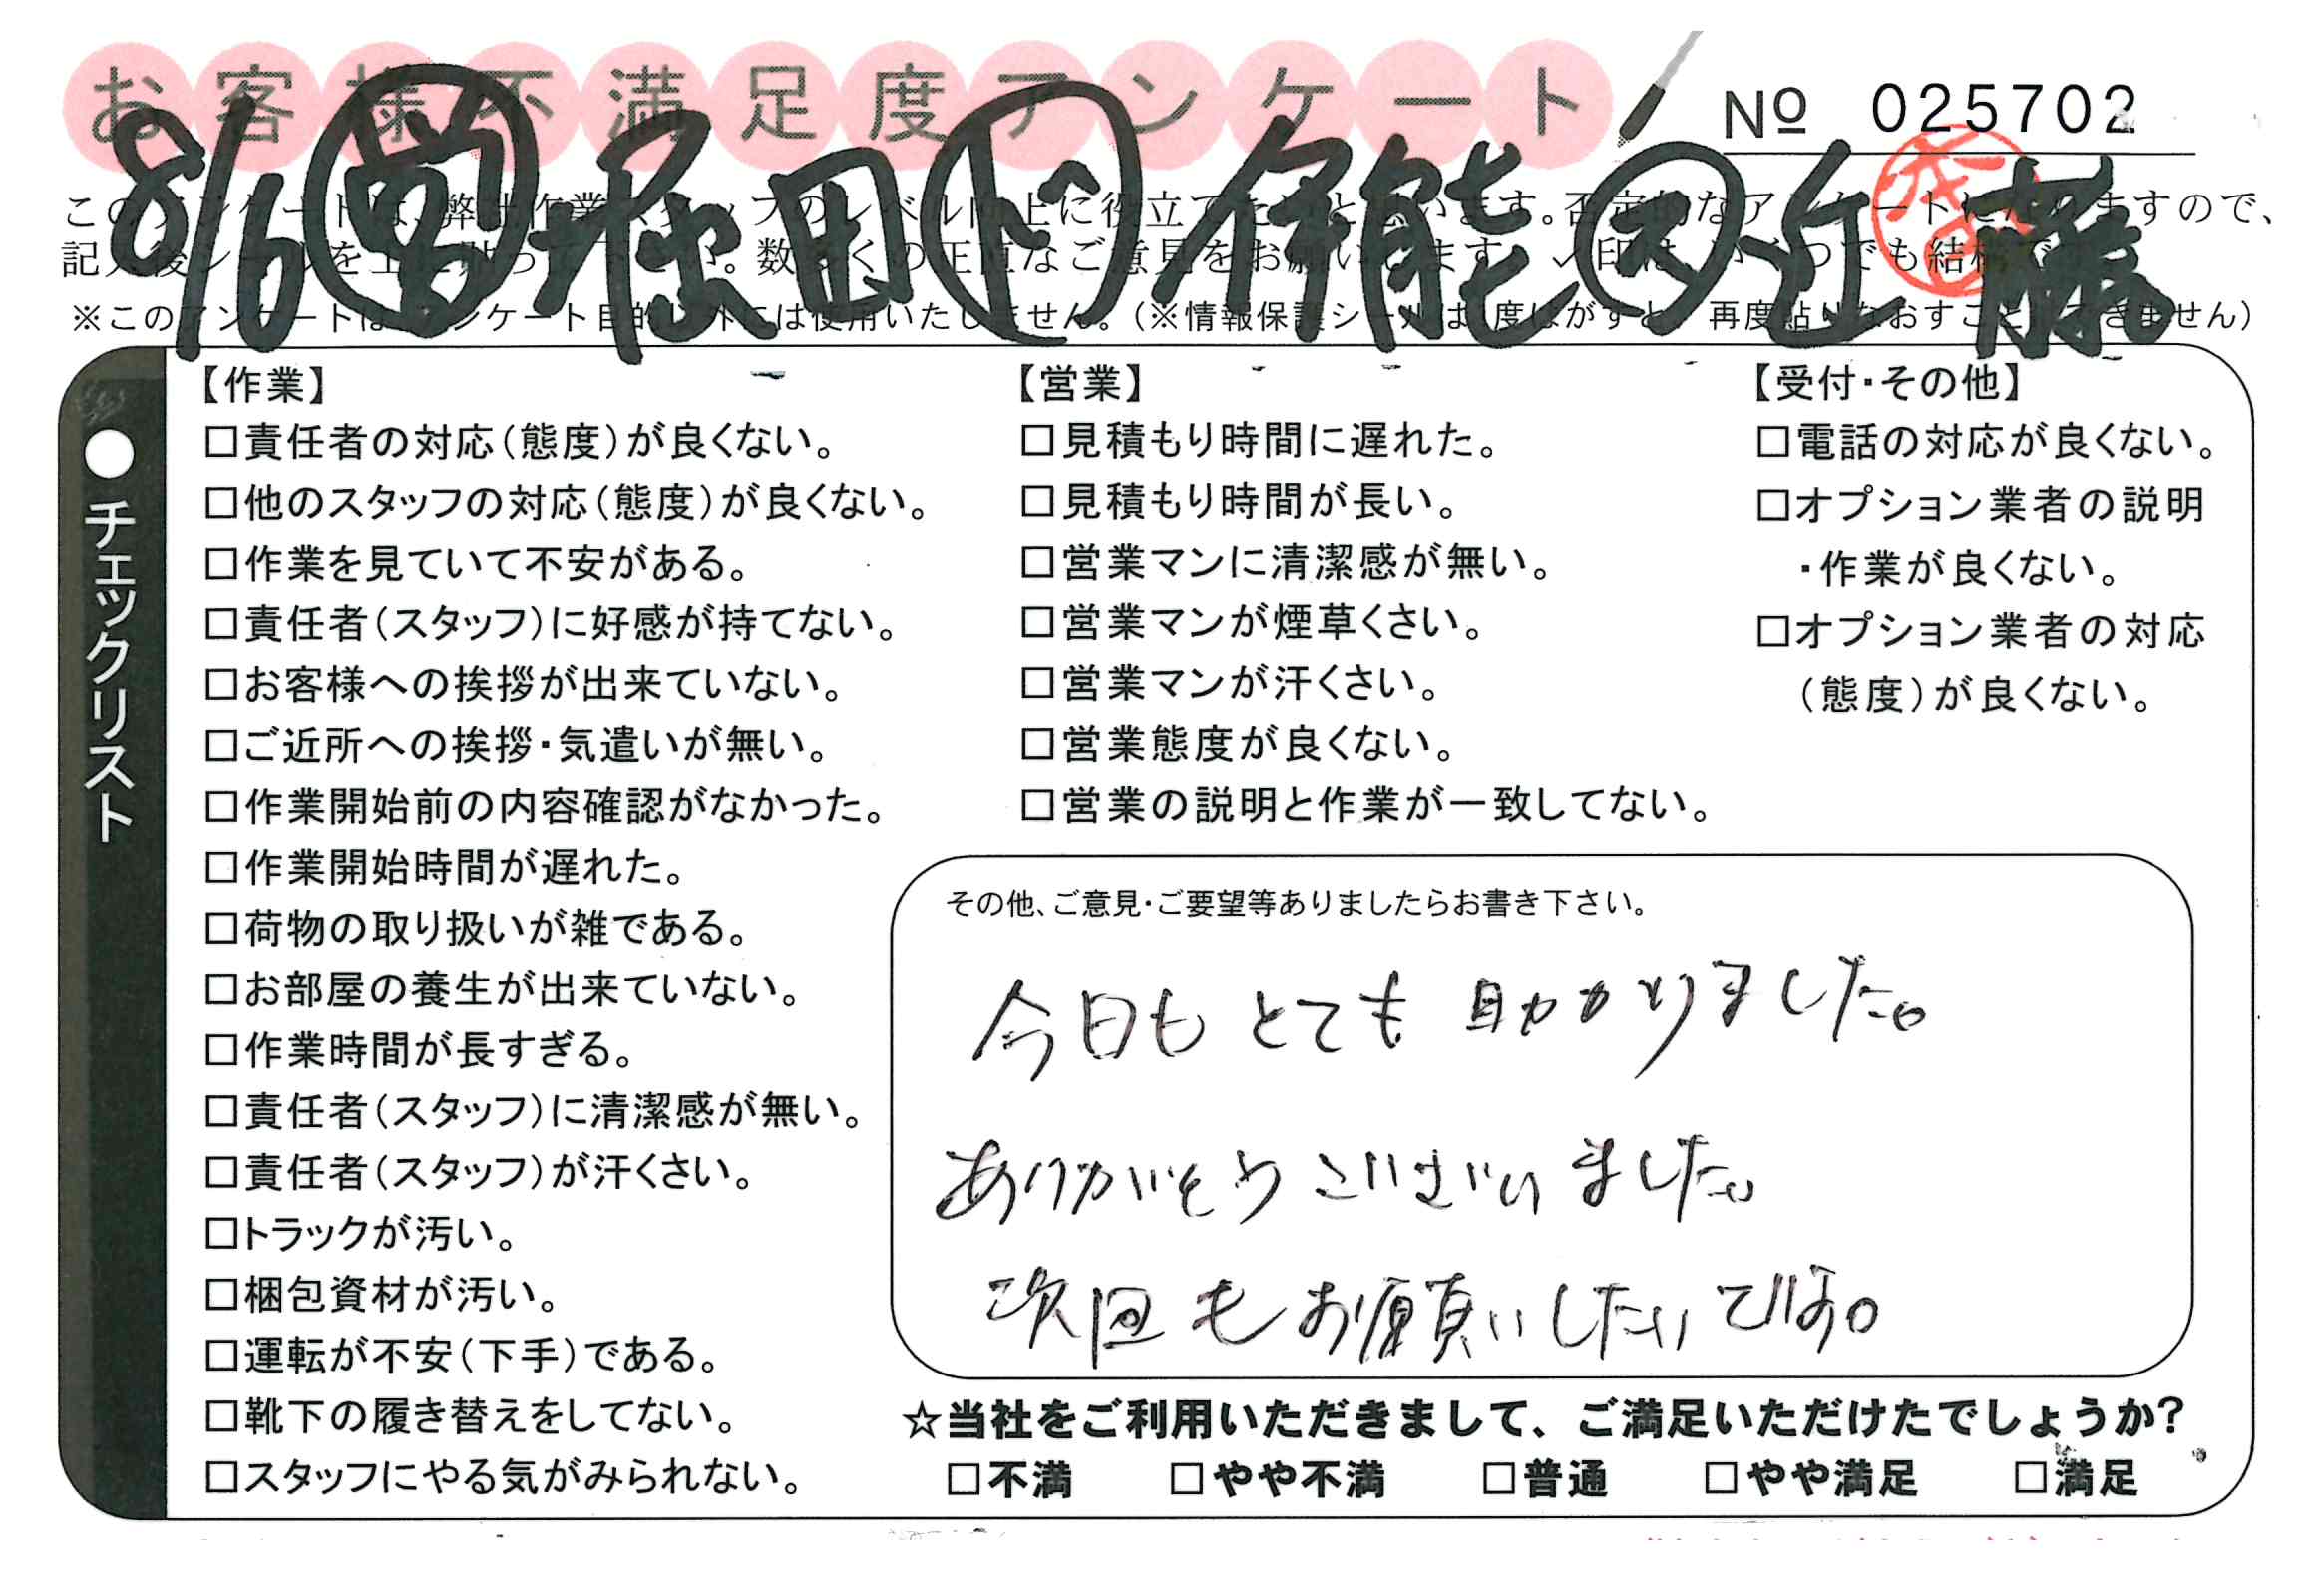 お客様不満足度アンケート
No 025702
8/6 営 堀田 ド 伊能 ス 近藤
このアンケートは、弊社作業スタッフのレベル向上に役立てたいと思います。否定的なアンケートになりますので、
記入後シールを上に貼って下さい。数多くの正直なご意見をお願いします。✓印は、いくつでも結構です。
※このアンケートはアンケート目的以外には使用いたしません。(※情報保護シールは1度はがすと、再度貼りなおすことはできません)
●チェックリスト
【作業】
□責任者の対応(態度)が良くない。
□他のスタッフの対応(態度)が良くない。
□作業を見ていて不安がある。
□責任者(スタッフ)に好感が持てない。
□お客様への挨拶が出来ていない。
□ご近所への挨拶・気遣いが無い。
□作業開始前の内容確認がなかった。
□作業開始時間が遅れた。
□荷物の取り扱いが雑である。
□お部屋の養生が出来ていない。
□作業時間が長すぎる。
□責任者(スタッフ)に清潔感が無い。
□責任者(スタッフ)が汗くさい。
□トラックが汚い。
□梱包資材が汚い。
□運転が不安(下手)である。
□靴下の履き替えをしてない。
□スタッフにやる気がみられない。
【営業】
□見積もり時間に遅れた。
□見積もり時間が長い。
□営業マンに清潔感が無い。
□営業マンが煙草くさい。
□営業マンが汗くさい。
□営業態度が良くない。
□営業の説明と作業が一致してない。
【受付・その他】
□電話の対応が良くない。
□オプション業者の説明
・作業が良くない。
□オプション業者の対応
(態度)が良くない。
その他、ご意見・ご要望等ありましたらお書き下さい。
今日もとても助かりました。
ありがとうございました。
次回もお願いしたいです。
☆当社をご利用いただきまして、ご満足いただけたでしょうか?
□不満 □やや不満 □普通 □やや満足 □満足